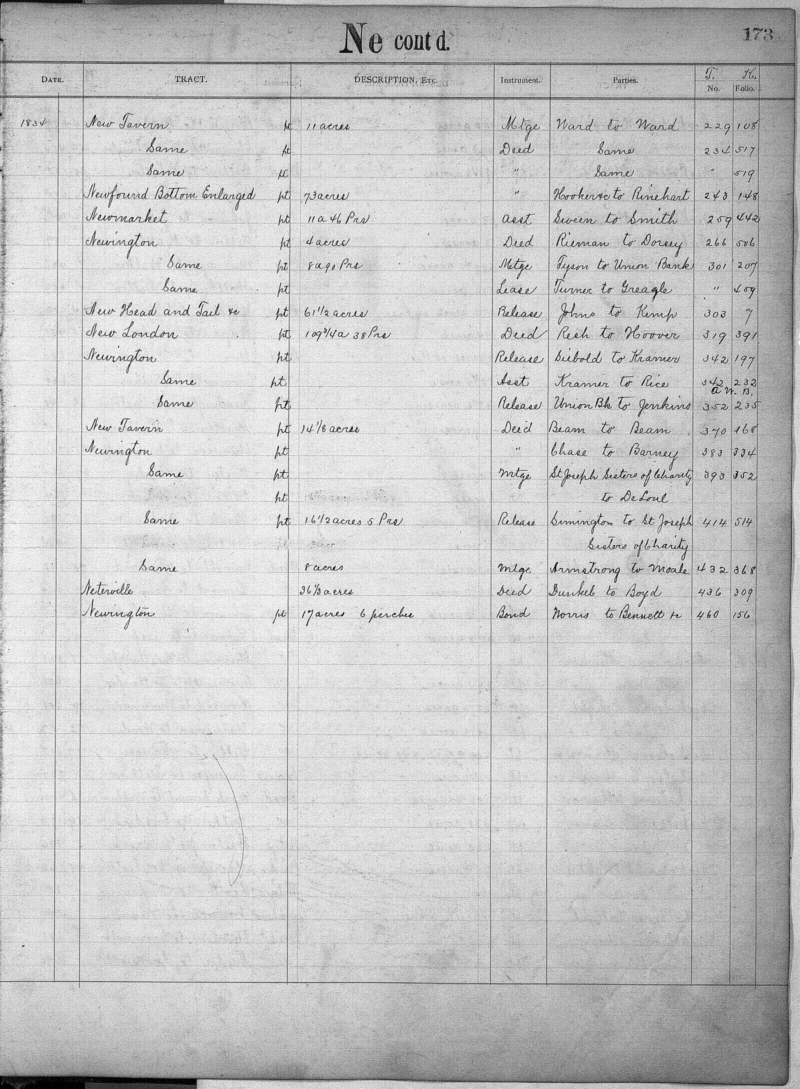 Ne cont'd.
173
DATE. TRACT. DESCRIPTION, Etc. Instrument. Parties. T. No. K. Folio.
1834 New Tavern pt 11 acres Mtge Ward to Ward 229 108
Same pt Deed Same 234 517
Same pt " Same " 519
Newfound Bottom Enlarged pt 73 acres " Hooker &c to Rinehart 243 148
Newmarket pt 11 a 46 Prs asst to Smith 259 442
Newington pt 4 acres Deed Rieman to Dorsey 266 506
Same pt 8 a 90 Prs Mtge Tyson to Union Bank 301 207
Same pt Lease Turner to Greagle " 409
New Head and Tail &c pt 61 1/2 acres Release Johns to Kemp 303 7
New London pt 109 3/4 a 38 Prs Deed to Hoover 319 391
Newington pt Release Siebold to Kramer 342 197
Same pt Asst Kramer to Rice 342 232
a W. B.
Same pt Release Union Bk to Jenkins 352 235
New Tavern pt 14 1/8 acres Deed Beam to Beam 370 168
Newington pt " Chase to Barney 383 334
Same pt Mtge St Joseph Sisters of Charity 393 352
pt to De Loul
Same pt 16 1/2 acres 5 Prs Release Simington to St Joseph 414 514
Sisters of Charity
Same 8 acres Mtge Armstrong to Moale 432 368
Neterville 36 1/3 acres Deed Dunkel to Boyd 436 309
Newington pt 17 acres 6 perches Bond Norris to Bennett &c 460 156